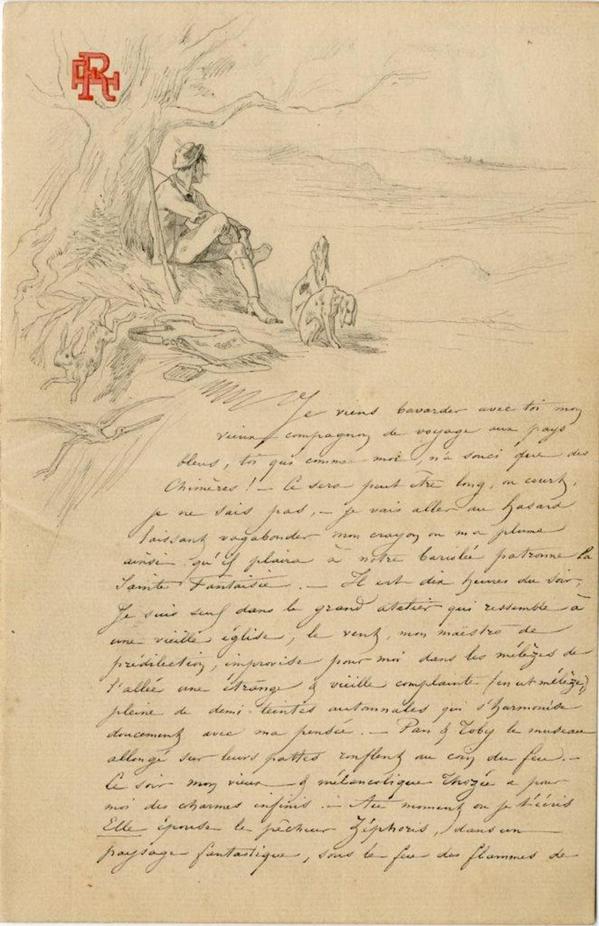 Je viens bavarder avec toi mon
vieux compagnon de voyage aux pays
bleus, toi qui comme moi, n'a souci que des
Chimères ! — Ce sera peut être long, ou court,
je ne sais pas, — je vais aller au hasard
laissant vagabonder mon crayon ou ma plume
ainsi qu'il plaira à notre bariolée patronne La
Sainte Fantaisie. — Il est dix heures du soir,
Je suis seul dans le grand atelier qui ressemble à
une vieille église, le vent, mon maëstro de
prédilection, improvise pour moi dans les mélèzes de
l'allée une étrange & vieille complainte (en ut mélèze),
pleine de demi-teintes automnales qui s'harmonise
doucement avec ma pensée. — Pan & Toby le museau
allongé sur leurs pattes ronflent au coin du feu. —
Ce soir mon vieux & mélancolique Thozée a pour
moi des charmes infinis. — Au moment où je t'écris
Elle épouse le pêcheur Zéphoris, dans un
paysage fantastique, sous le feu des flammes de